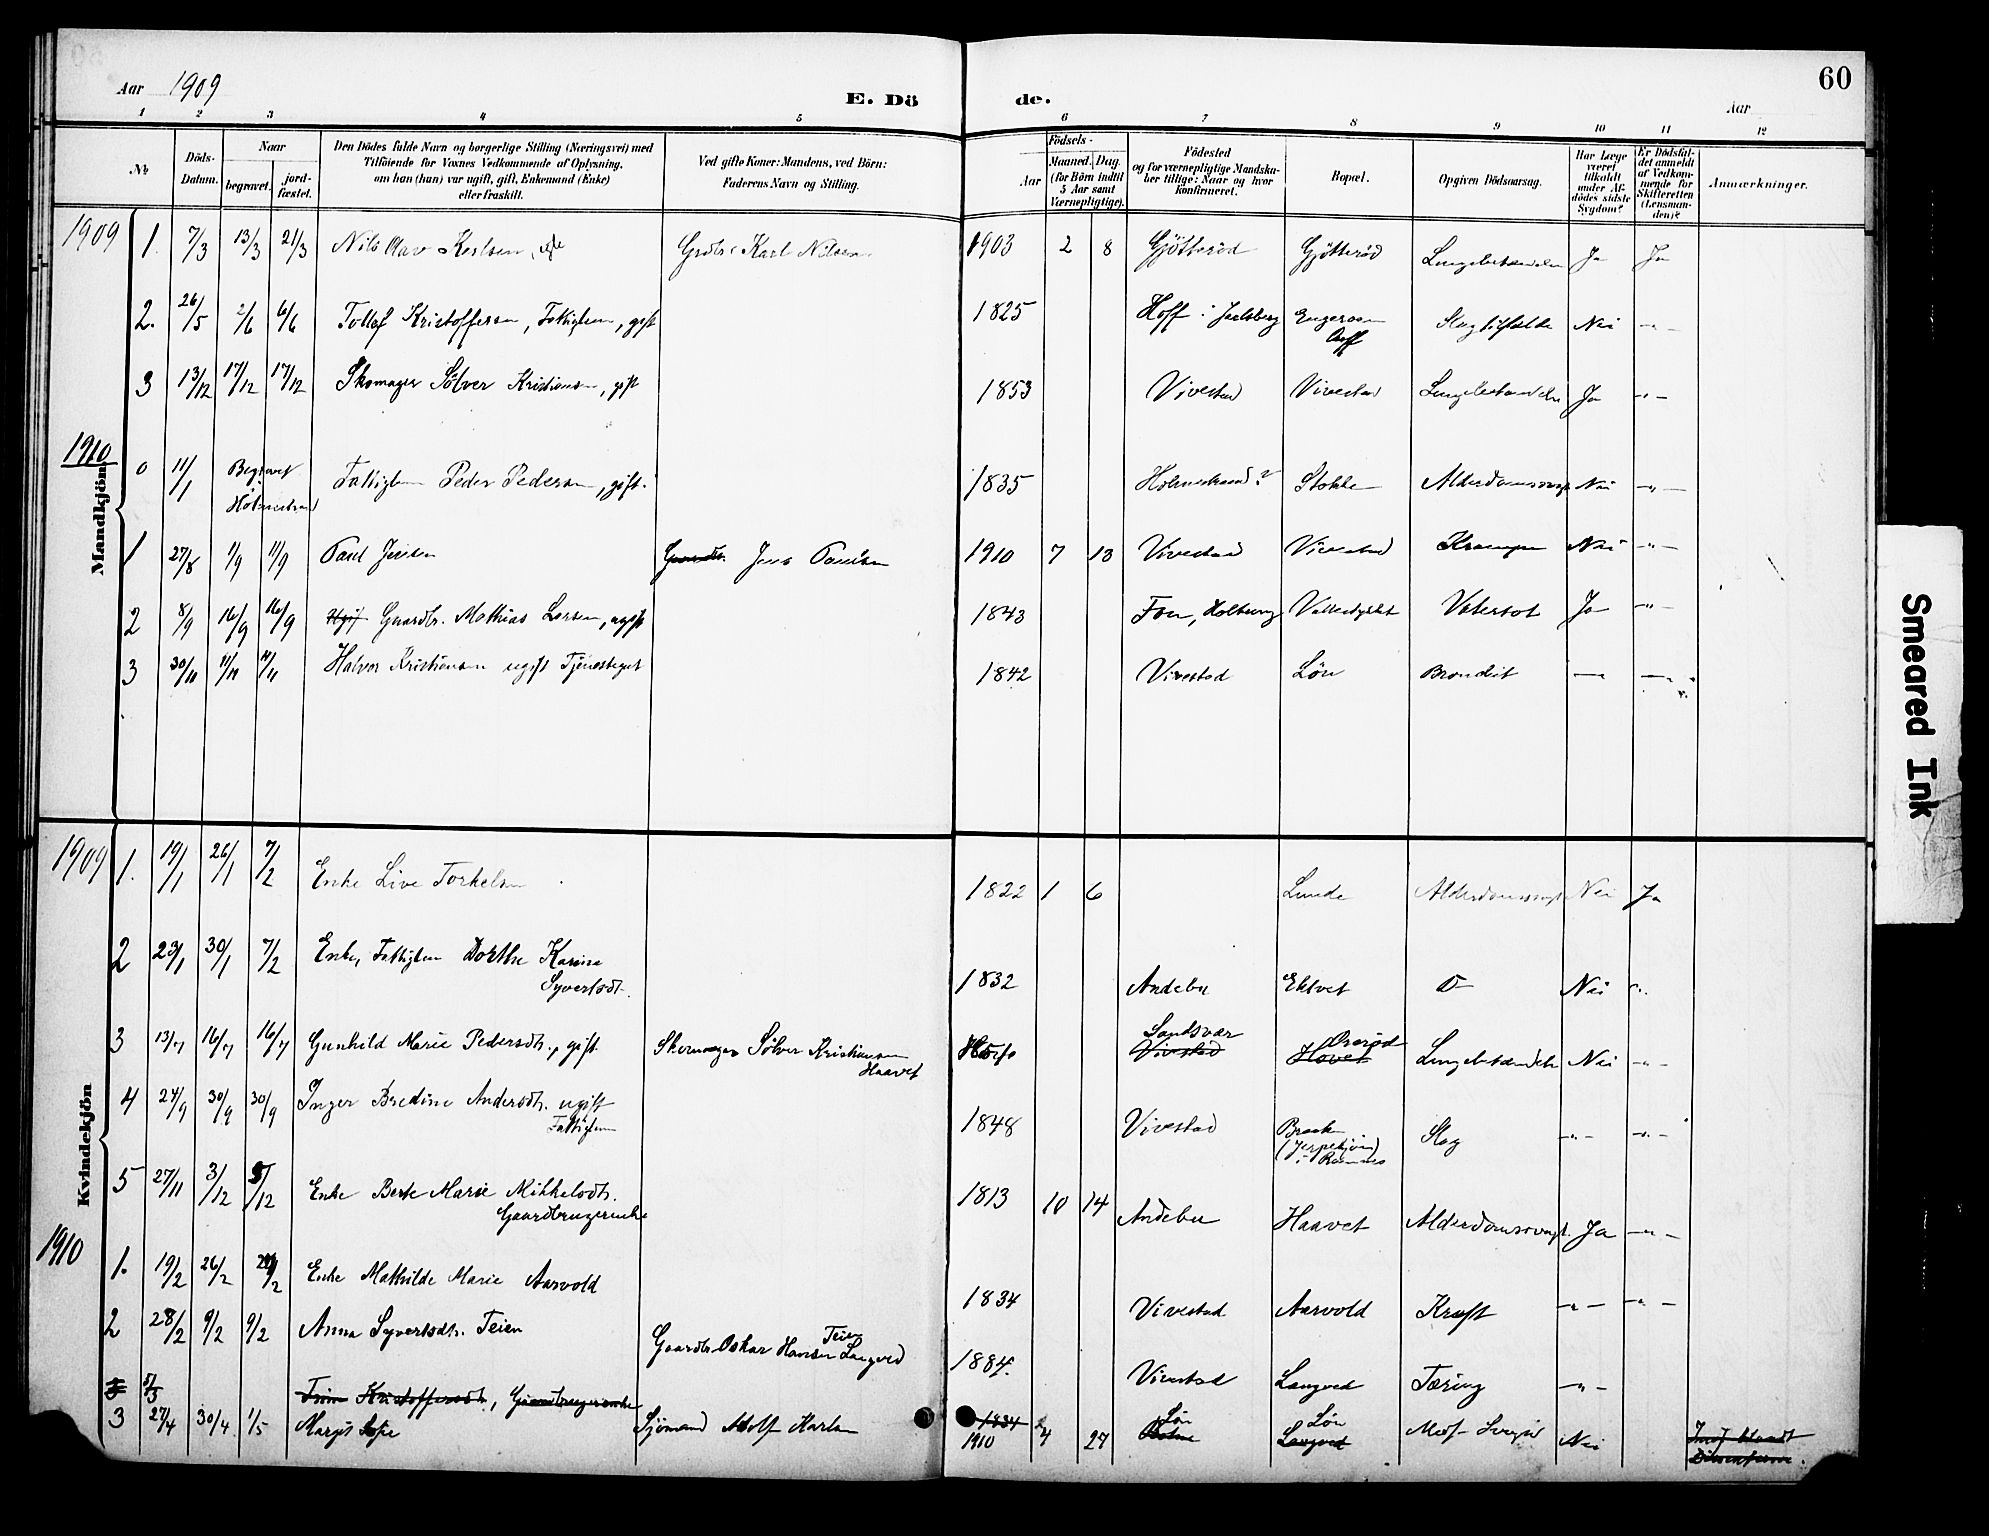 60
Aar 1909
E. Dö de.
Aar
1 2 3 4 5 6 7 8 9 10 11 12
No
Döds-Datum.
Naar
begravet.
jord-fæstet.
Den Dödes fulde Navn og borgerlige Stilling (Næringsvei) med
Tilföiende for Voxnes Vedkommende af Oplysning,
om han (hun) var ugift, gift, Enkemand (Enke)
eller fraskilt.
Ved gifte Koner: Mandens, ved Börn:
Faderens Navn og Stilling.
Födsels-
Aar
Maaned. Dag.
(for Börn indtil
5 Aar samt
Værnepligtige).
Födested
og for værnepligtige Mandska-
ber tillige: Naar og hvor
konfirmeret.
Bopæl.
Opgiven Dödsaarsag.
Har Læge
været
tilkaldt
under Af-
dödes sidste
Sygdom?
Er Dödsfal-
det anmeldt
af Vedkom-
mende for
Skifteretten
(Lensman-
den)?
Anmærkninger.
Mandkjön
1909 1. 7/3 13/3 21/3 Nils Olav Karlsen, Karl Nilsen 1903 2 8 Gjötteröd Gjötteröd Lungebetændelse Ja Ja
2. 26/5 2/6 6/6 Tollef Kristoffersen, Fattiglem, gift 1825 Hoff i Jarlsberg Slagtilfælde Nei -"-
3 13/12 17/12 17/12 Skomager Sölver Kristiansen, gift 1853 Vivestad Vivestad Lungebetændelse Ja -"-
1910 0 11/1 Begravet Holmestrand Fattiglem Peder Pedersen, gift. 1835 Holmestrand? Stokke Alderdomssvagh. Nei -"-
1 27/8 1/9 11/9 Paul Jensen Jens Paulsen 1910 7 13 Vivestad Vivestad Krampe Nei -"-
2 8/9 16/9 16/9 Gaardbr. Mathias Larsen, ugift 1843 Fon, Vatersot Ja -"-
3 30/10 11/11 11/11 Halvor Kristiansen ugift Tjenestegut 1842 Vivestad Lön Brondit — —
Kvindekjön
1909 1. 19/1 26/1 7/2 Enke Live Torkelsen 1822 1 6 Lunde Alderdomssvagh. Nei Ja
2 23/1 30/1 7/2 Enke, Fattiglem Dorthe Karine
Syvertsdt. 1832 Andebu Ektvet D- Nei -"-
3 13/7 16/7 16/7 Gunhild Marie Pedersdt., gift Skomager Sölver Kristiansen
Haavet Sandsvær Vivestad Haavet Lungebetændelse Nei -"-
4 24/9 30/9 30/9 Inger Bredine Andersdt. ugift
Fattiglem 1848 Vivestad Slag -"- -"-
i Ramnes
5 27/11 3/12 5/12 Enke Berte Marie Mikkelsdt.
Gaardbrugerenke 1813 10 14 Andebu Haavet Alderdomssvagh. Ja -"-
1910 1. 19/2 26/2 Enke Mathilde Marie Aarvold 1834 Vivestad Aarvold Kræft -"- -"-
2 28/2 9/2 9/2 Anna Syvertsdt. Teien Gaardbr. Oskar Hansen Teien Langved 1884. Vivestad Langved Tæring -"-
5/3 Kristoffersdt., Gaardbrugerenke 1834
3 27/4 30/4 1/5 Margit Sofie Sjömand Adolf Karlsen 1910 4 27 Lön Lön Langved Nei
Smeared Ink